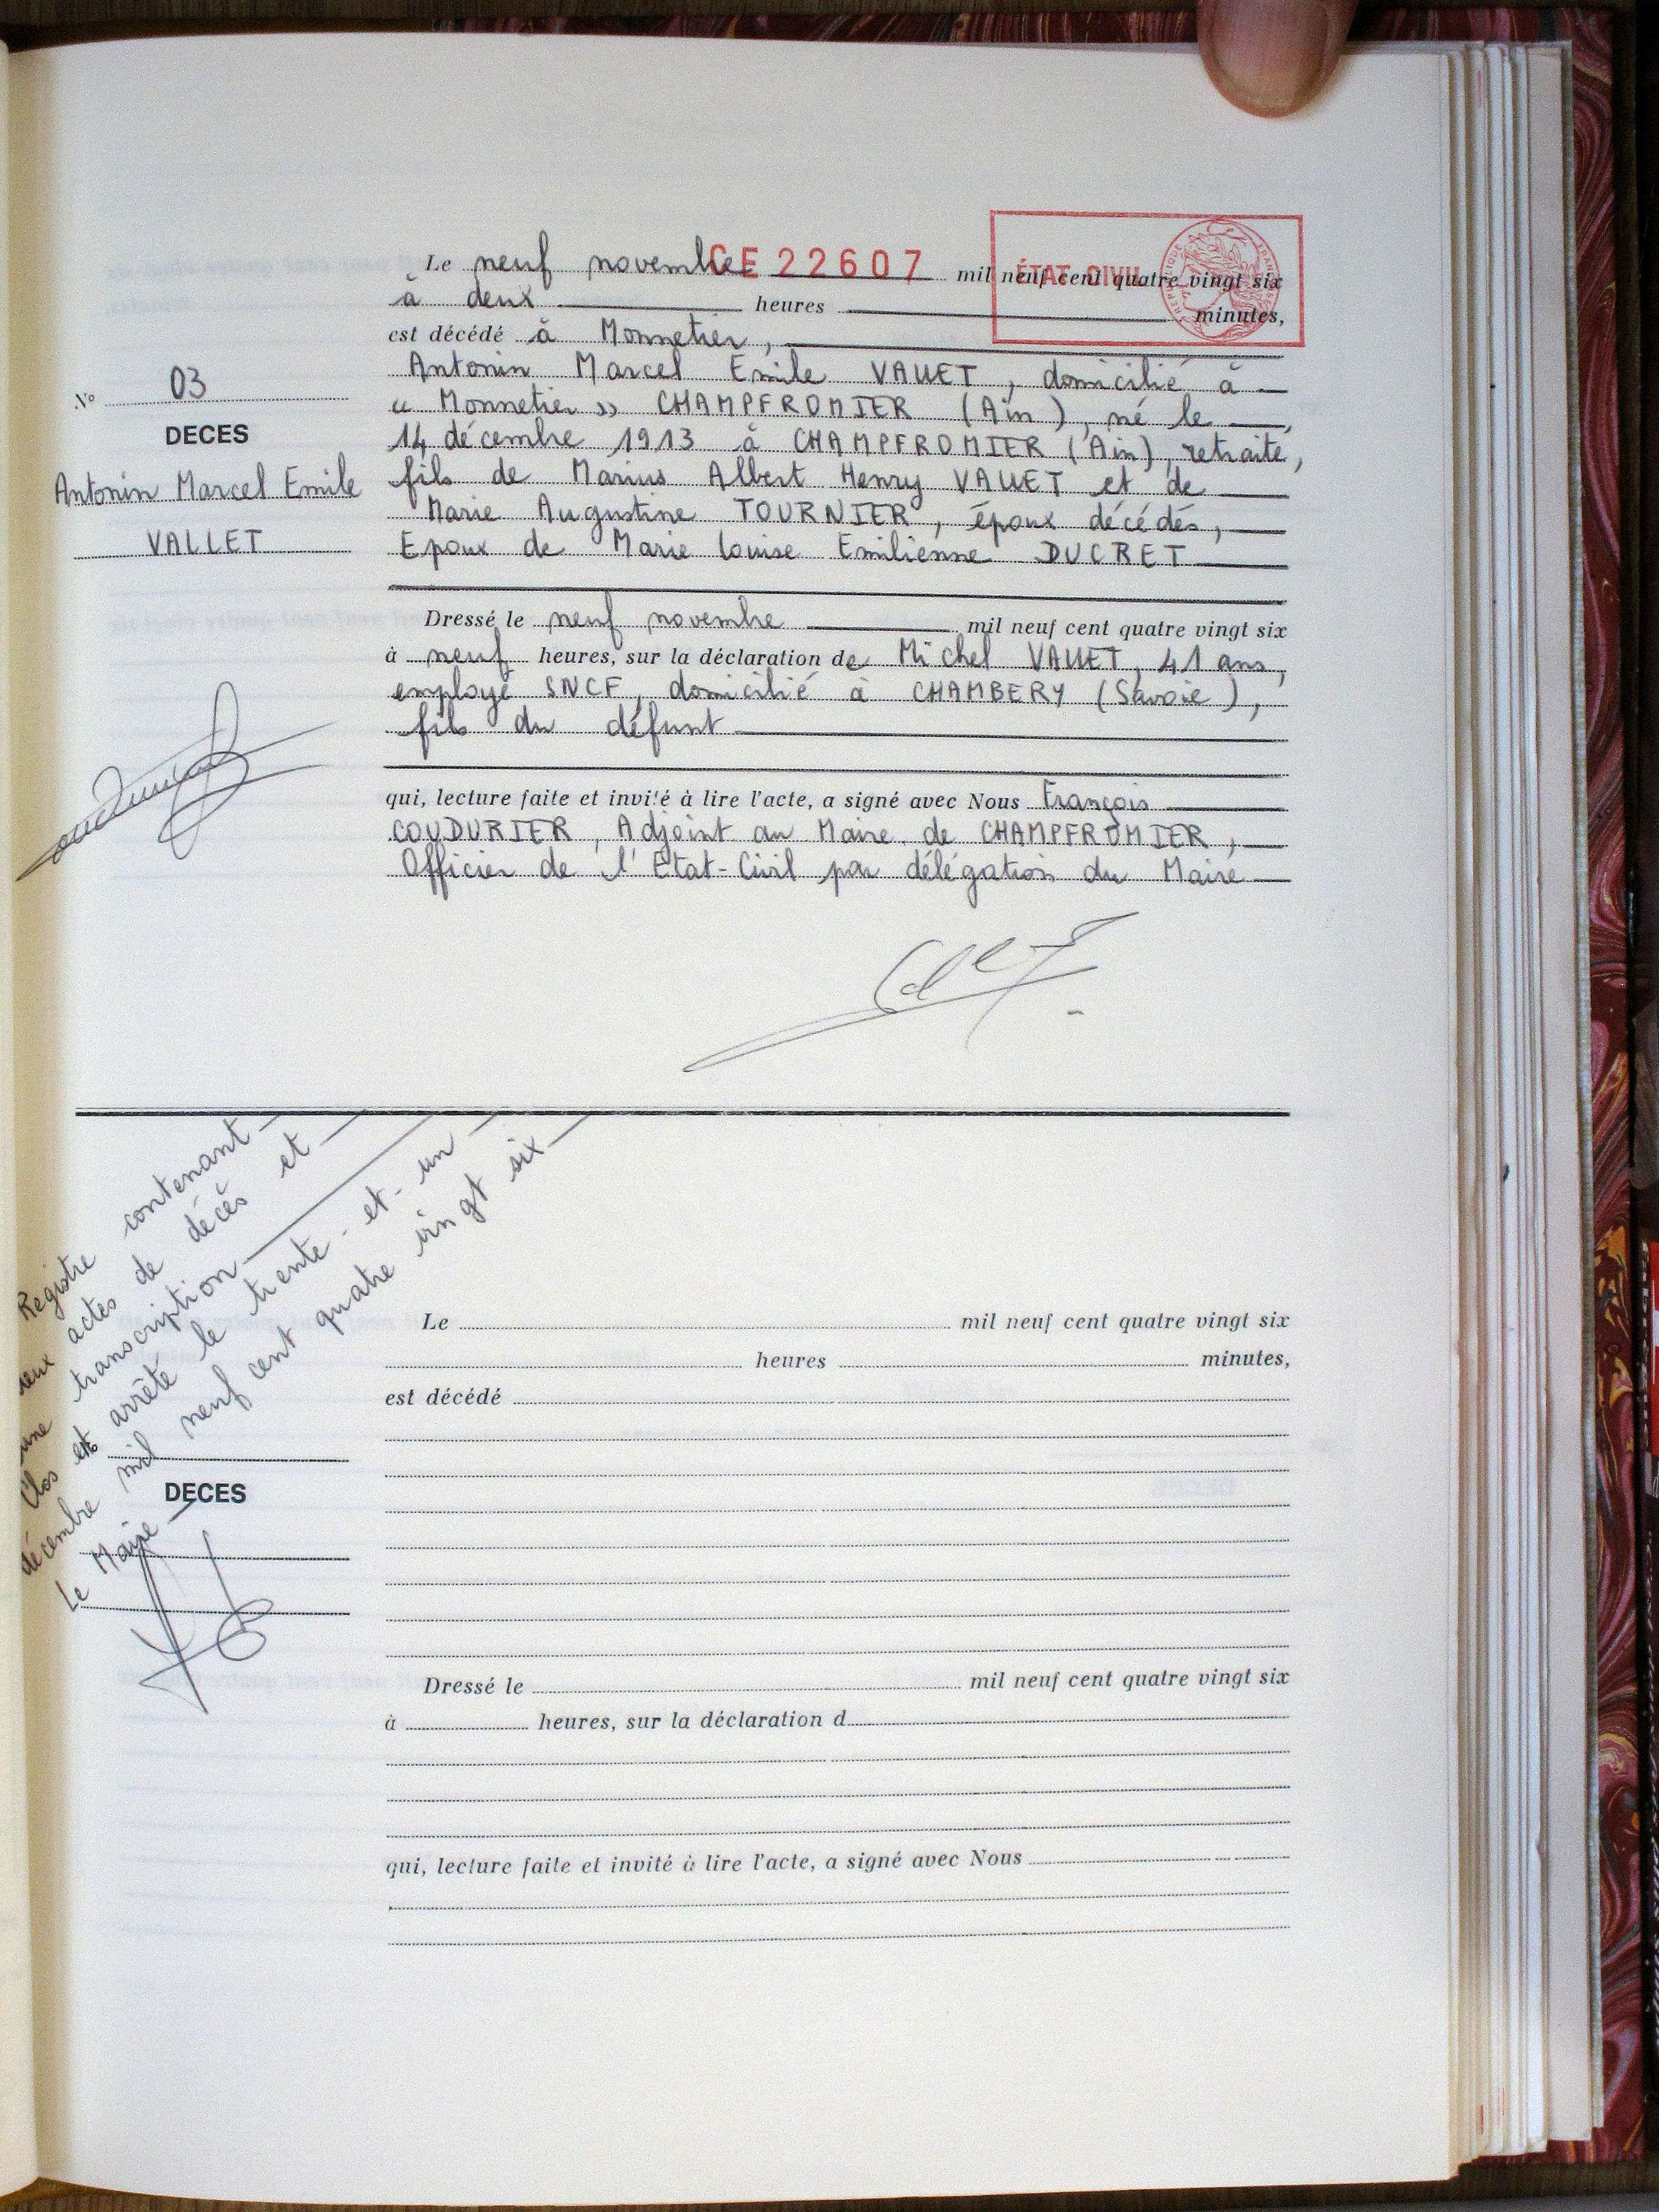 CE 22607
ÉTAT-CIVIL
RÉPUBLIQUE FRANÇAISE
Le neuf novembre mil neuf cent quatre vingt six
à deux heures minutes,
est décédé à Monnetier,
Antonin Marcel Emile VALLET, domicilié à
« Monnetier » CHAMPFROMIER (Ain), né le
14 décembre 1913 à CHAMPFROMIER (Ain), retraité,
fils de Marius Albert Henry VALLET et de
Marie Augustine TOURNIER, époux décédés,
Epoux de Marie Louise Emilienne DUCRET
N° 03
DECES
Antonin Marcel Emile
VALLET
Dressé le neuf novembre mil neuf cent quatre vingt six
à neuf heures, sur la déclaration de Michel VALLET, 41 ans,
employé SNCF, domicilié à CHAMBERY (Savoie),
fils du défunt
qui, lecture faite et invité à lire l'acte, a signé avec Nous François
COUDURIER, Adjoint au Maire de CHAMPFROMIER,
Officier de l'Etat-Civil par délégation du Maire
Registre contenant
deux actes de décès et
une transcription
Clos et arrêté le trente-et-un
décembre mil neuf cent quatre vingt six
Le Maire
Le mil neuf cent quatre vingt six
heures minutes,
est décédé
DECES
Dressé le mil neuf cent quatre vingt six
à heures, sur la déclaration d
qui, lecture faite et invité à lire l'acte, a signé avec Nous